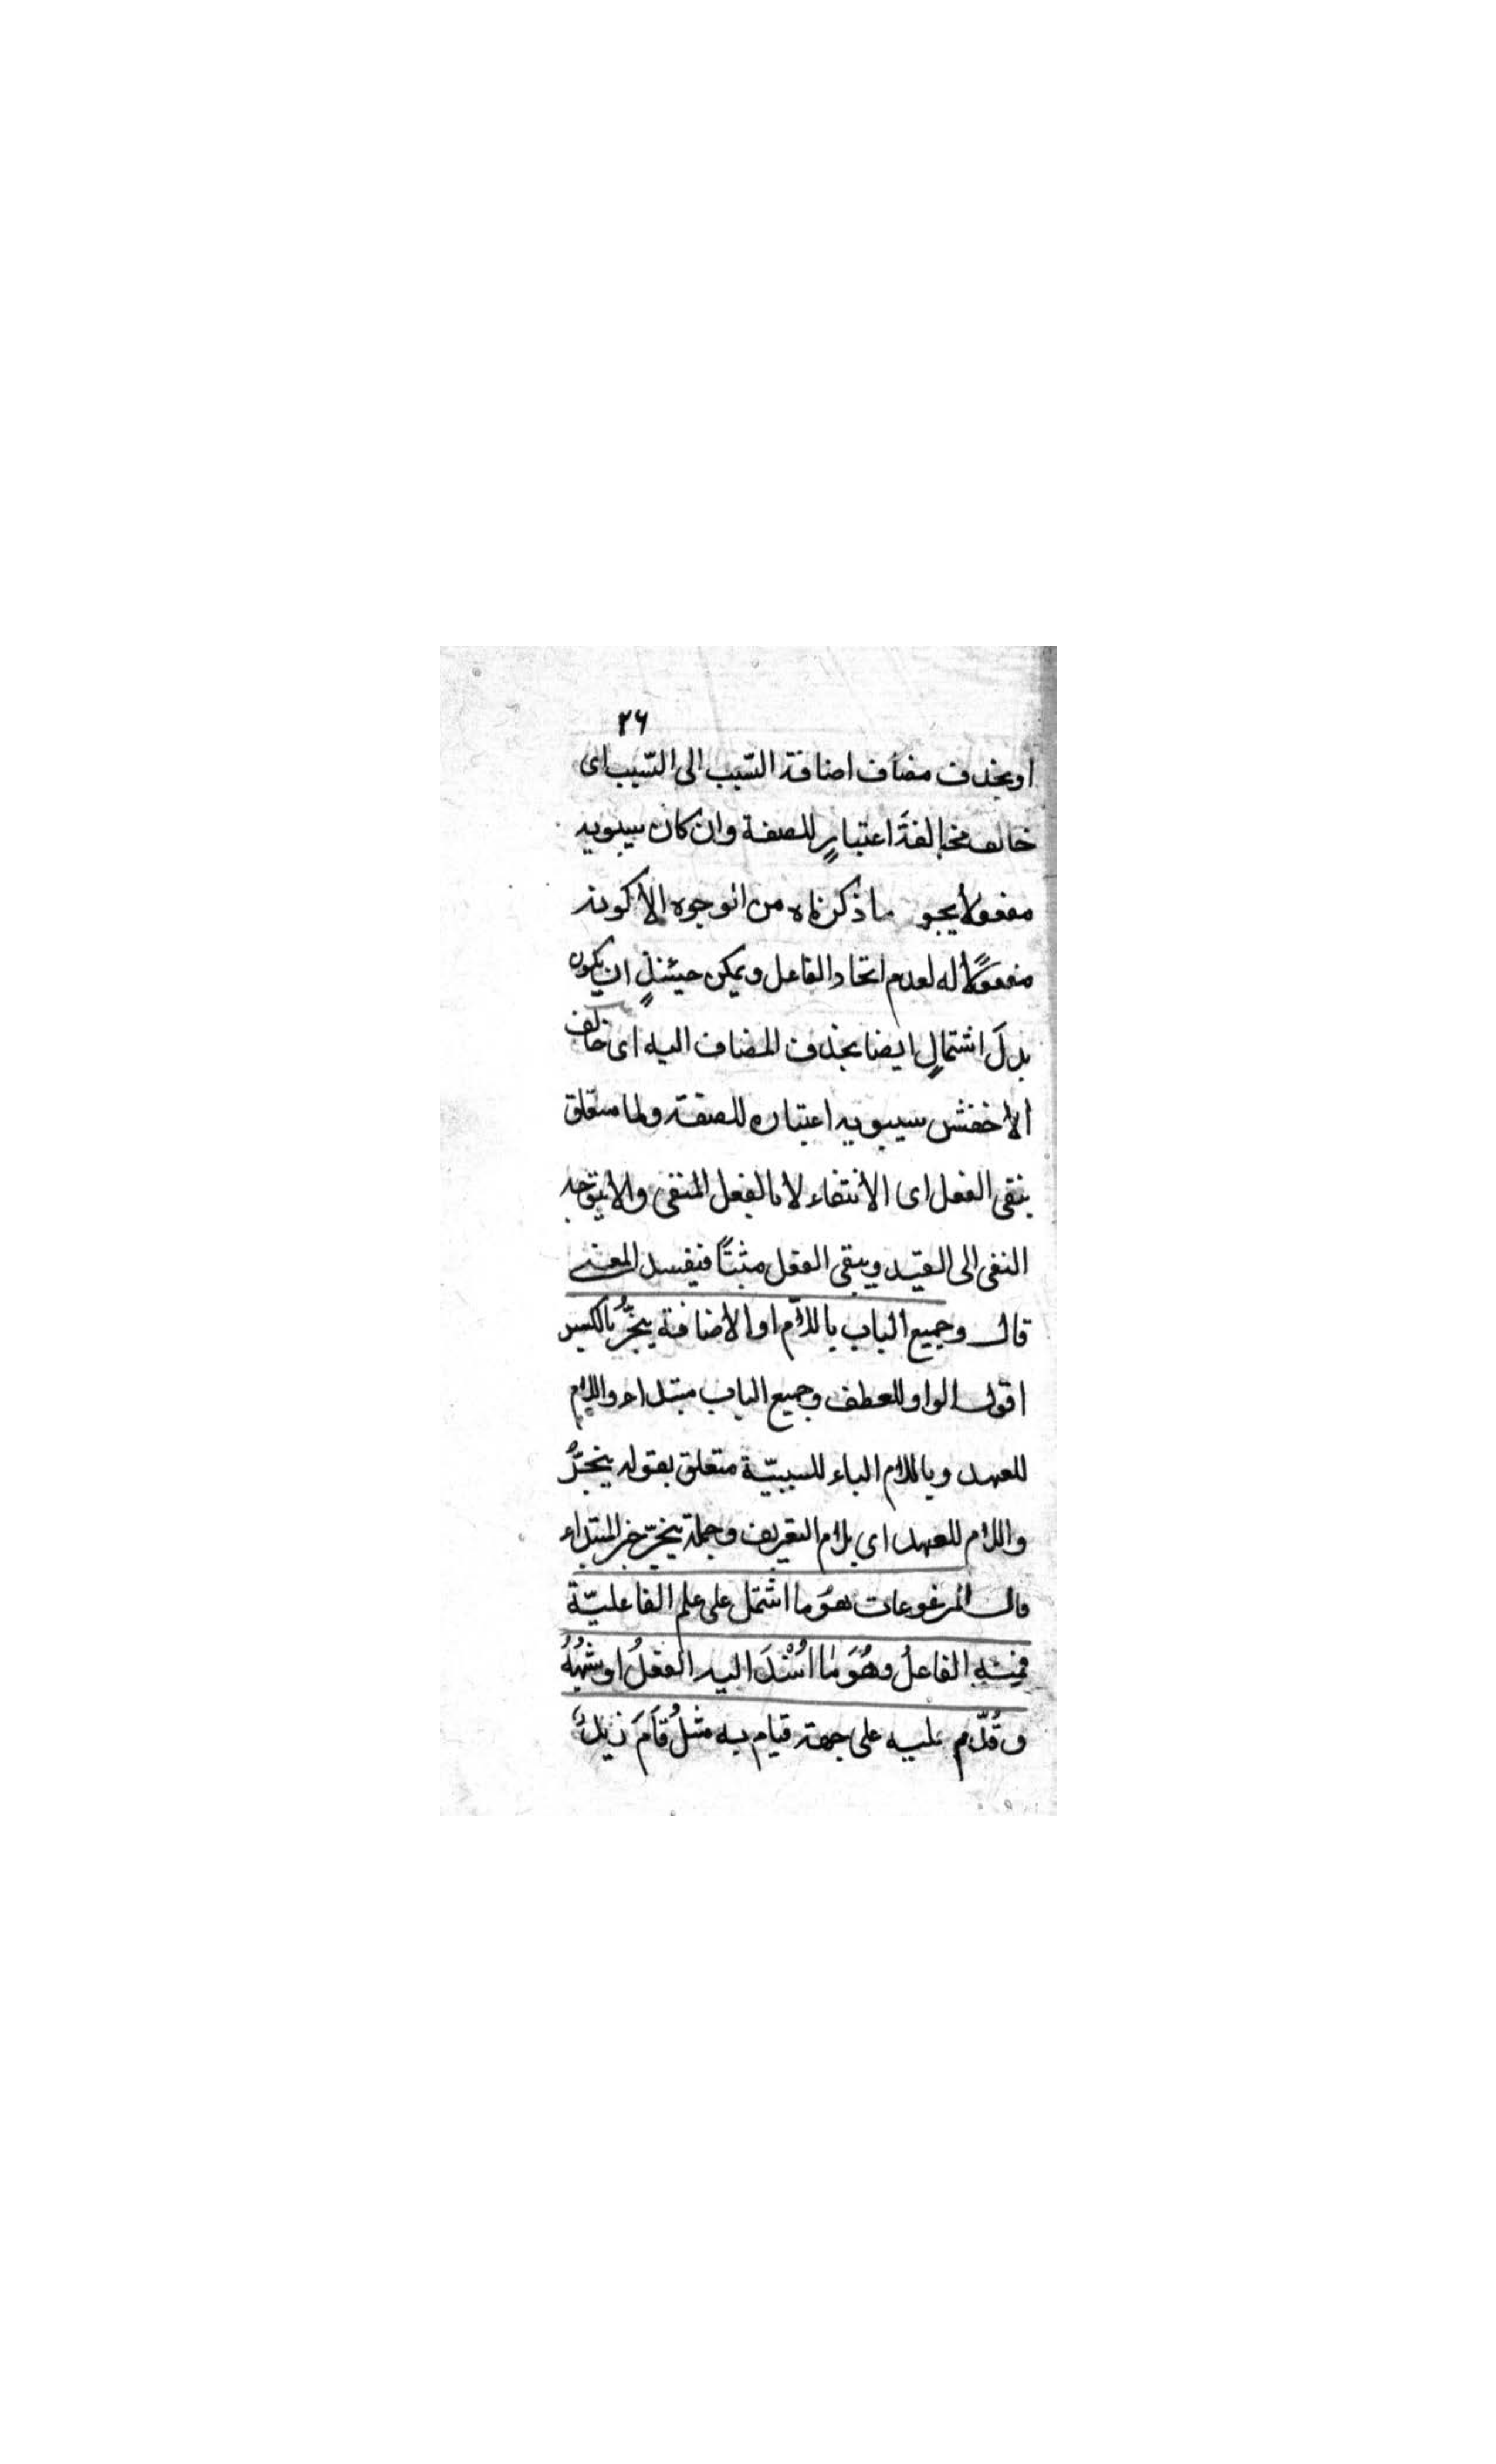 ٢٦
او بحذف مضاف اضافة السّبب الى السّبب اى
خالف مخالفةَ اعتبارٍ للصفة وان كان سيبويه
مفعولا يجو ما ذكرناه من الوجوه الا كونه
مفعولًا له لعدم اتحاد الفاعل ويمكن حينئذٍ ان يكون
بدلَ اشتمالٍ ايضا بحذف المضاف اليه اى خالف
الاخفش سيبويه اعتباره للصفة ولما متعلق
بنفى الفعل اى الانتفاء لا بالفعل المنفى والا يتوجه
النفى الى القيد ويبقى الفعل مثبتًا فيفسد المعنى
قال وجميع الباب باللام او الاضافة ينجرُّ بالكسر
اقول الواو للعطف وجميع الباب مبتداء واللام
للعهد وباللام الباء للسببيّة متعلق بقوله ينجرُّ
واللام للعهد اى بلام التعريف وجملة ينجرّ خبر المبتداء
قال المرفوعات هو ما اشتمل على علم الفاعليّة
فمنه الفاعلُ وهُوَ ما اُسْنِدَ اليه الفعلُ او شبهُهُ
وقُدّم عليه على جهة قيامه به مثلُ قَامَ زيدٌ